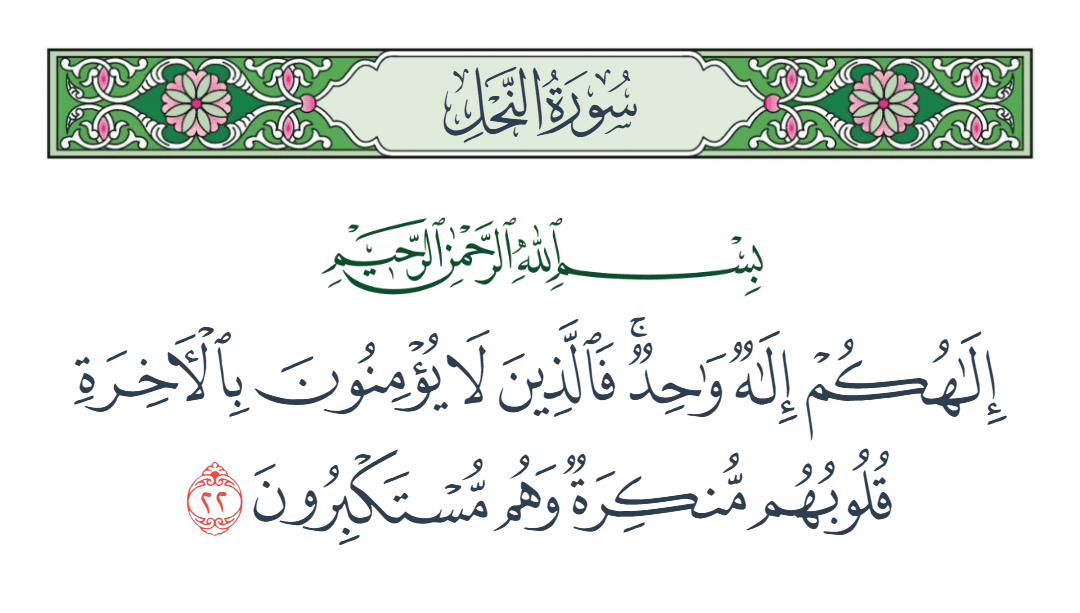 سُورَةُ النَّحْلِ
بِسْمِ ٱللَّهِ ٱلرَّحْمَٰنِ ٱلرَّحِيمِ
إِلَٰهُكُمْ إِلَٰهٌ وَٰحِدٌ ۚ فَٱلَّذِينَ لَا يُؤْمِنُونَ بِٱلْأَخِرَةِ
قُلُوبُهُم مُّنكِرَةٌ وَهُم مُّسْتَكْبِرُونَ ٢٢